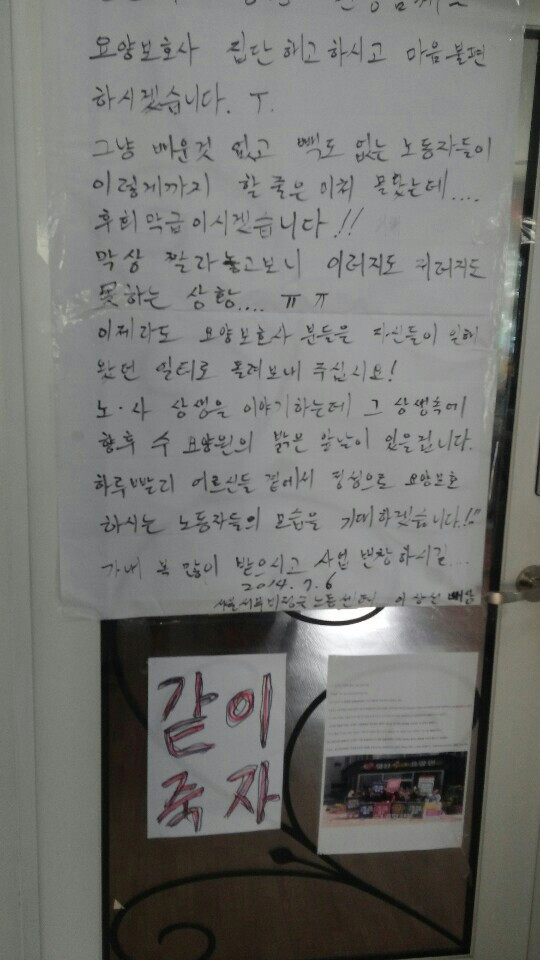 요양보호사 집단해고하시고 마음불편
하시겠습니다. ㅜ.
그냥 배운것 없고 빽도 없는 노동자들이
이렇게까지 할 줄은 미처 몰랐는데....
후회막급이시겠습니다!!
막상 짤라놓고보니 이러지도 저러지도
못하는 상황.... ㅠㅠ
이제라도 요양보호사 분들을 자신들이 일해
왔던 일터로 돌려보내 주십시요!
노·사 상생을 이야기하는데 그 상생속에
향후 수 요양원의 밝은 앞날이 있을겁니다.
하루빨리 어르신들 곁에서 정성으로 요양보호
하시는 노동자들의 모습을 기대하겠습니다.!!
가내 복 많이 받으시고 사업 번창하시길...
2014.7.6
비정규노동센터 이상선 배상
같이
죽자